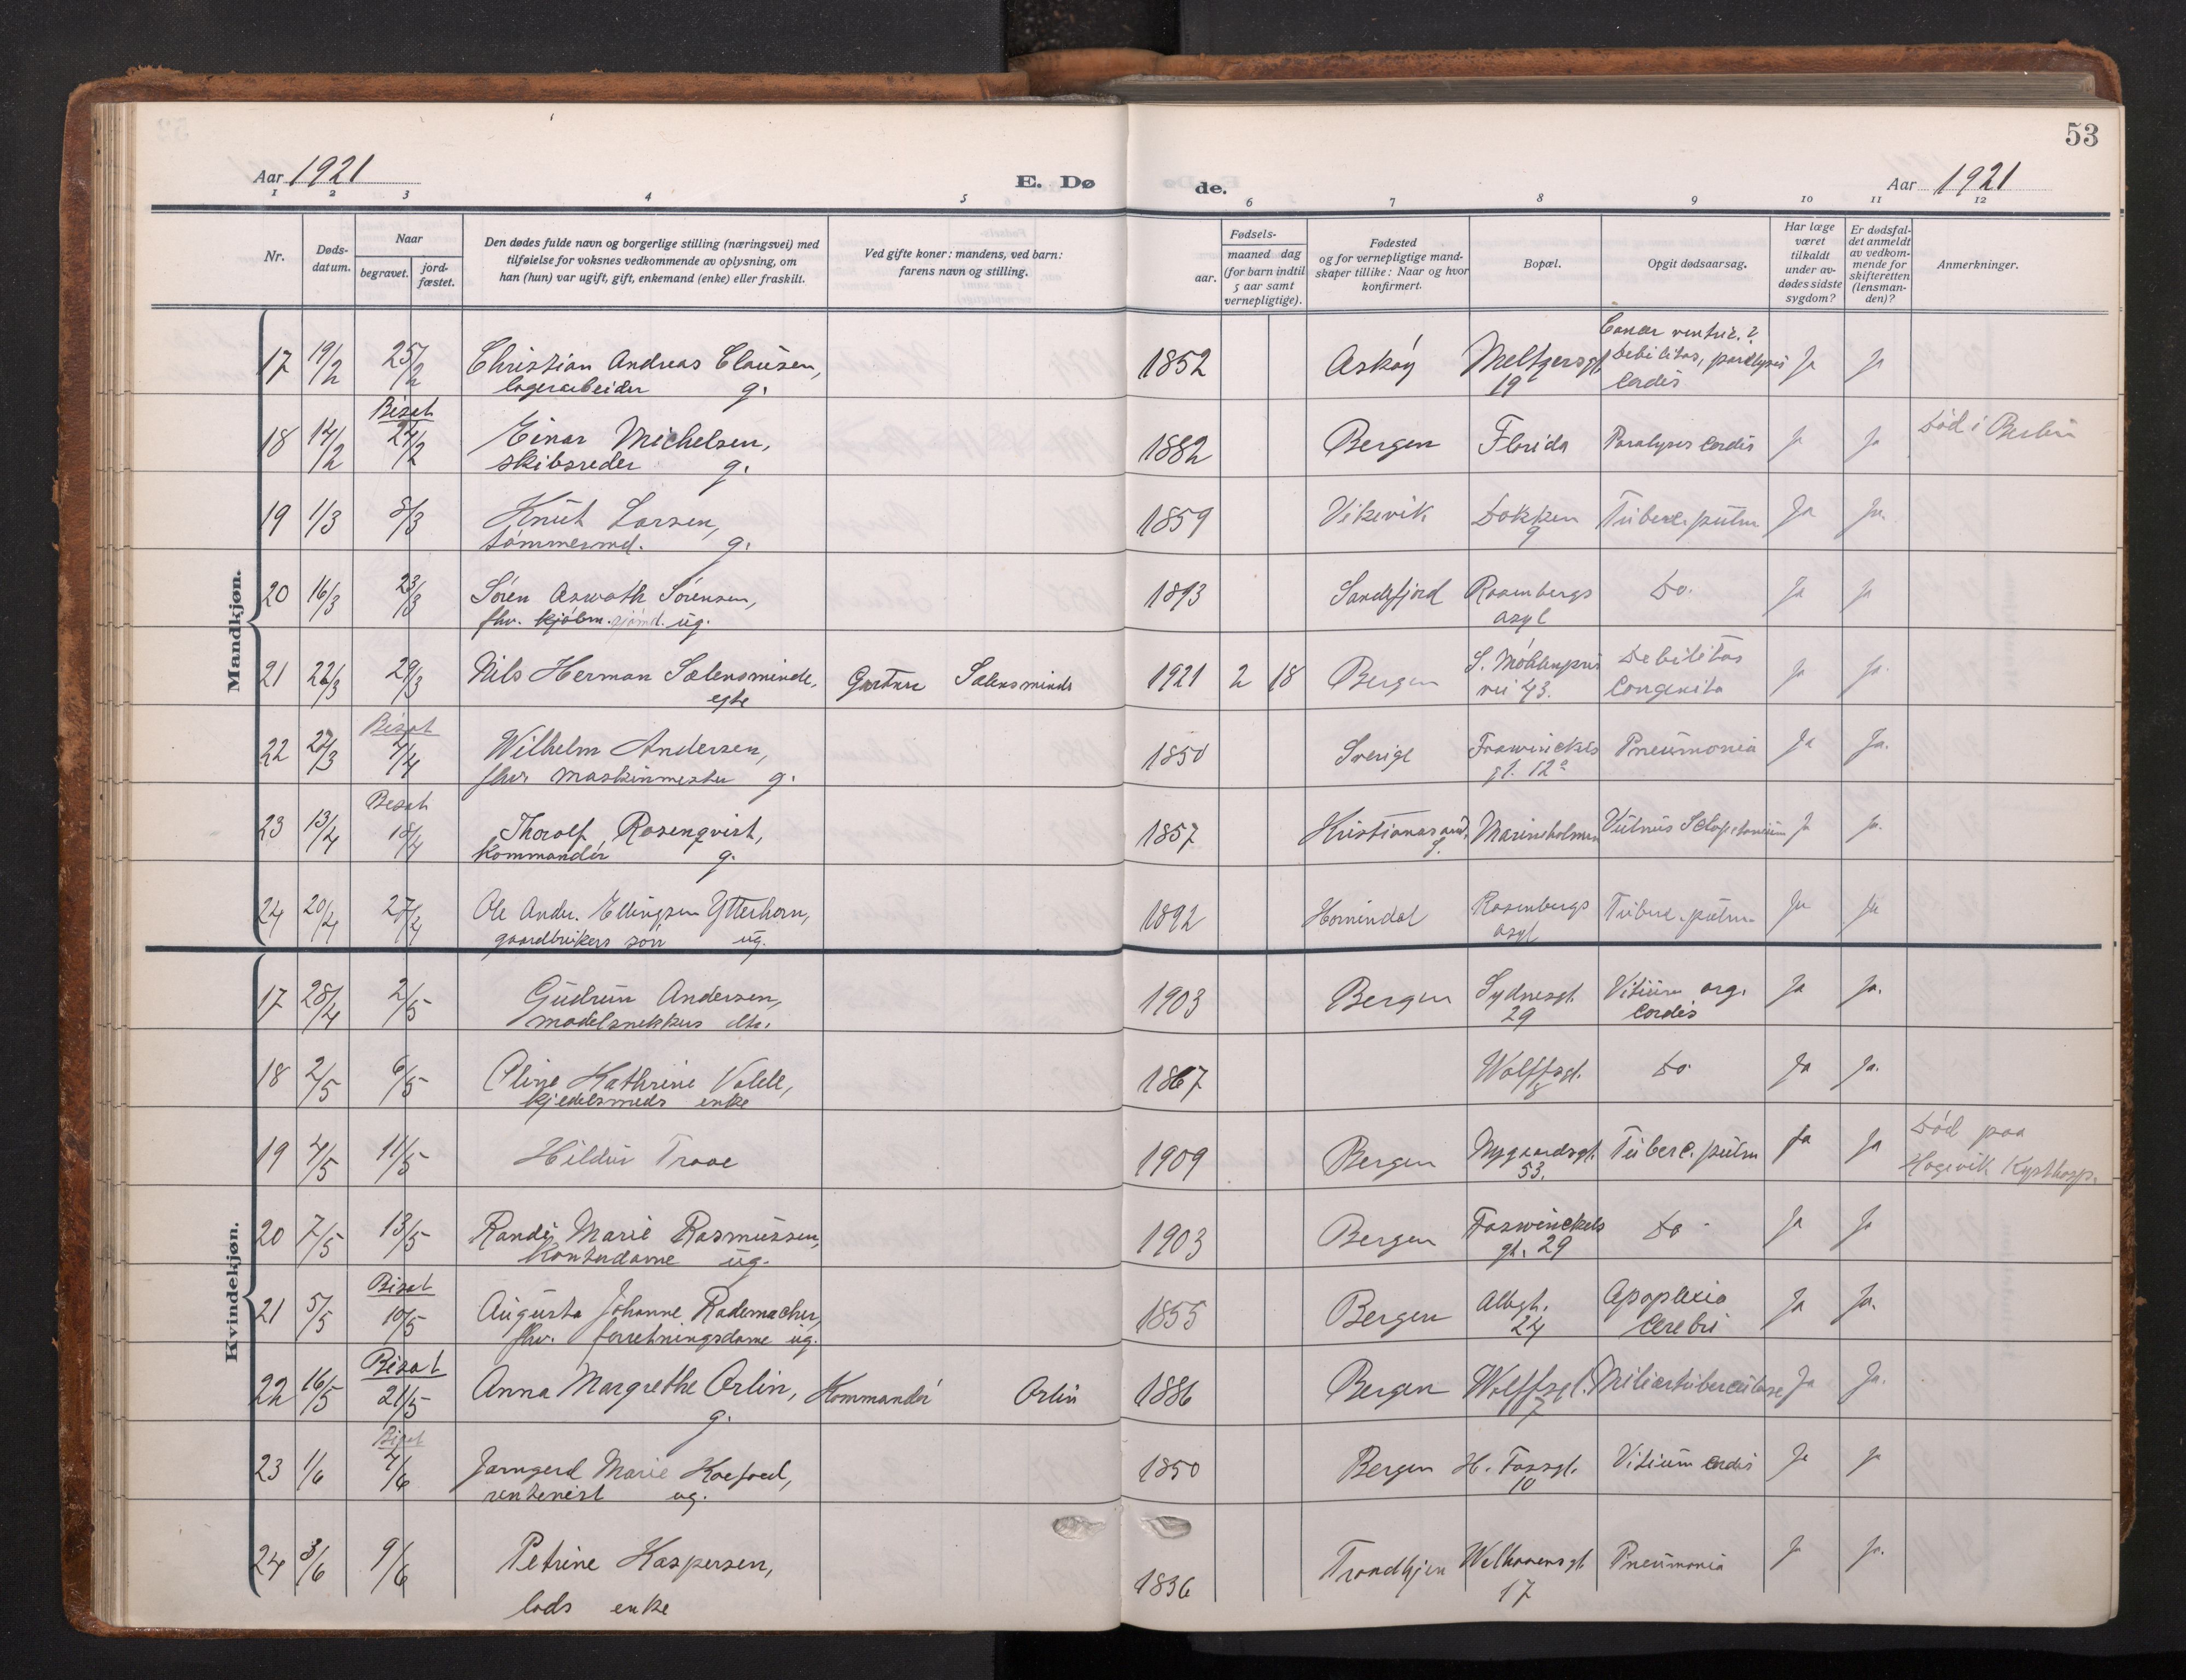 53
Aar 1921
E. Dø
de.
Aar 1921
1 2 3 4 5 6 7 8 9 10 11 12
Nr.
Døds-
datum.
Naar
begravet.
jord-
fæstet.
Den dødes fulde navn og borgerlige stilling (næringsvei) med
tilføielse for voksnes vedkommende av oplysning, om
han (hun) var ugift, gift, enkemand (enke) eller fraskilt.
Ved gifte koner: mandens, ved barn:
farens navn og stilling.
Fødsels-
aar.
maaned dag
(for barn indtil
5 aar samt
vernepligtige).
Fødested
og for vernepligtige mand-
skaper tillike: Naar og hvor
konfirmert.
Bopæl.
Opgit dødsaarsag.
Har læge
været
tilkaldt
under av-
dødes sidste
sygdom?
Er dødsfal-
det anmeldt
av vedkom-
mende for
skifteretten
(lensman-
den)?
Anmerkninger.
Mandkjøn.
Cancer ventric.?
17 19/2 25/2 Christian Andreas Clausen, 1852 Askøy Meltzersgt. Debilitas, paralysis Ja Ja
lagerarbeider g. 19 Cordis
Bisat
18 14/2 24/2 Einar Michelsen, 1882 Bergen Florida Paralysis Cordis Ja Ja Død i Berlin
skibsreder g.
19 1/3 8/3 Knut Larsen, 1859 Vikevik Dokken Tuberc. pulm Ja Ja.
tømmermd. g. 9
20 16/3 23/3 Søren Sørensen, 1893 Sandefjord Rosenbergs Do. Ja Ja
fhv. kjølm. sjømd. ug. asyl
21 22/3 29/3 Nils Herman Sælensminde, Gartner Sælensminde 1921 2 18 Bergen S. Møhlenpris Debilitas Ja Ja
egte vei 43. Congenita
Bisat
22 27/3 7/4 Wilhelm Andersen, 1850 Sverige Foswinckels Pneumonia Ja Ja.
fhv. maskinmester g. gt. 12a
Bisat
23 13/4 18/4 Thorolf Rosenqvist, 1857 Kristiansand Marineholmen Vulnus Sclopetarium Ja Ja.
Kommandør g. S.
24 20/4 27/4 Ole Andr. Ellingsen Ytterhorn, 1892 Hornindal Rosenbergs Tuberc. pulm Ja Ja
gaardbrukers søn ug. asyl
Kvindekjøn.
17 28/4 2/5 Gudrun Andersen, 1903 Bergen Sydnesgt. Vitium org. Ja Ja.
modelsnekkers dtr. 29 Cordis
18 2/5 6/5 Oline Kathrine Valde, 1867 Wolffsgt. Do Ja Ja.
kjedelsmeds enke 8
19 4/5 11/5 Hildur Traae 1909 Bergen Nygaardsgt. Tuberc. pulm Ja Ja Død paa
53. Hagevik Kysthosp.
20 7/5 13/5 Randi Marie Rasmussen, 1903 Bergen Foswinckels Do Ja Ja
Kontordame ug. gt. 29
Bisat
21 5/5 10/5 Augusta Johanne Rademacher, 1855 Bergen Allegt. Apoplexia Ja Ja.
fhv. forretningsdame ug. 24 Cerebri
Bisat
22 16/5 21/5 Anna Margrethe Orlin, Kommandør Orlin 1886 Bergen Wolffsgt. Miliærtuberculose Ja Ja.
g. 7
Bisat
23 1/6 7/6 Jarngerd Marie Koefoed, 1850 Bergen H. Fossgt. Vitium cordis Ja Ja
rentenist ug. 10
24 3/6 9/6 Petrine Kaspersen, 1836 Trondhjem Welhavensgt. Pneumonia Ja Ja.
lods enke 17